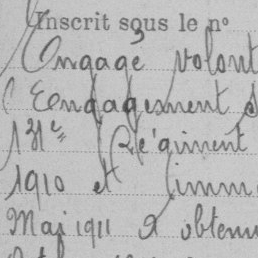 Inscrit sous le n°
Engagé volont
l'Engagement s
Régiment
1910 et imm
Mai 1911 a obtenu